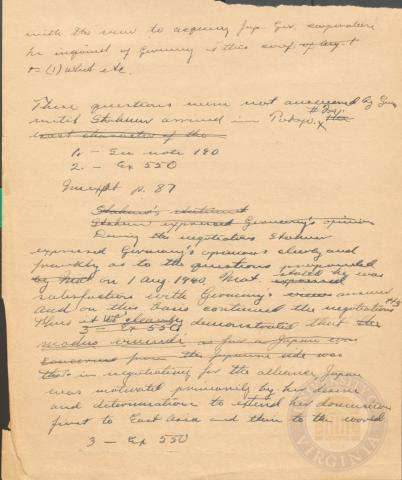 with the view to acquiring Jap. Gov. cooperation
he inquired of Germany
(1) what etc.
These questions were not answered by Ger
until Stahmer arrived in Tokyo. x
1. - See note 180
2. - Ex 550
Insert p. 87
Stahmer's statement
Stahmer expressed Germany's opinion
During the negotiations Stahmer
expressed Germany's opinions clearly and
frankly as to the questions propounded
by Mat on 1 Aug 1940. Mat. stated he was
satisfaction with Germany's views answer #3
and on this basis continued the negotiations
Thus it demonstrated that the
3 - Ex 550
so far as Japan was
concerned from the Japanese side was
that in negotiating for the alliance Japan
was motivated primarily by her desire
and determination to extend her dominion
first to East Asia and then to the world
3 - Ex 550
UNIVERSITY OF
VIRGINIA